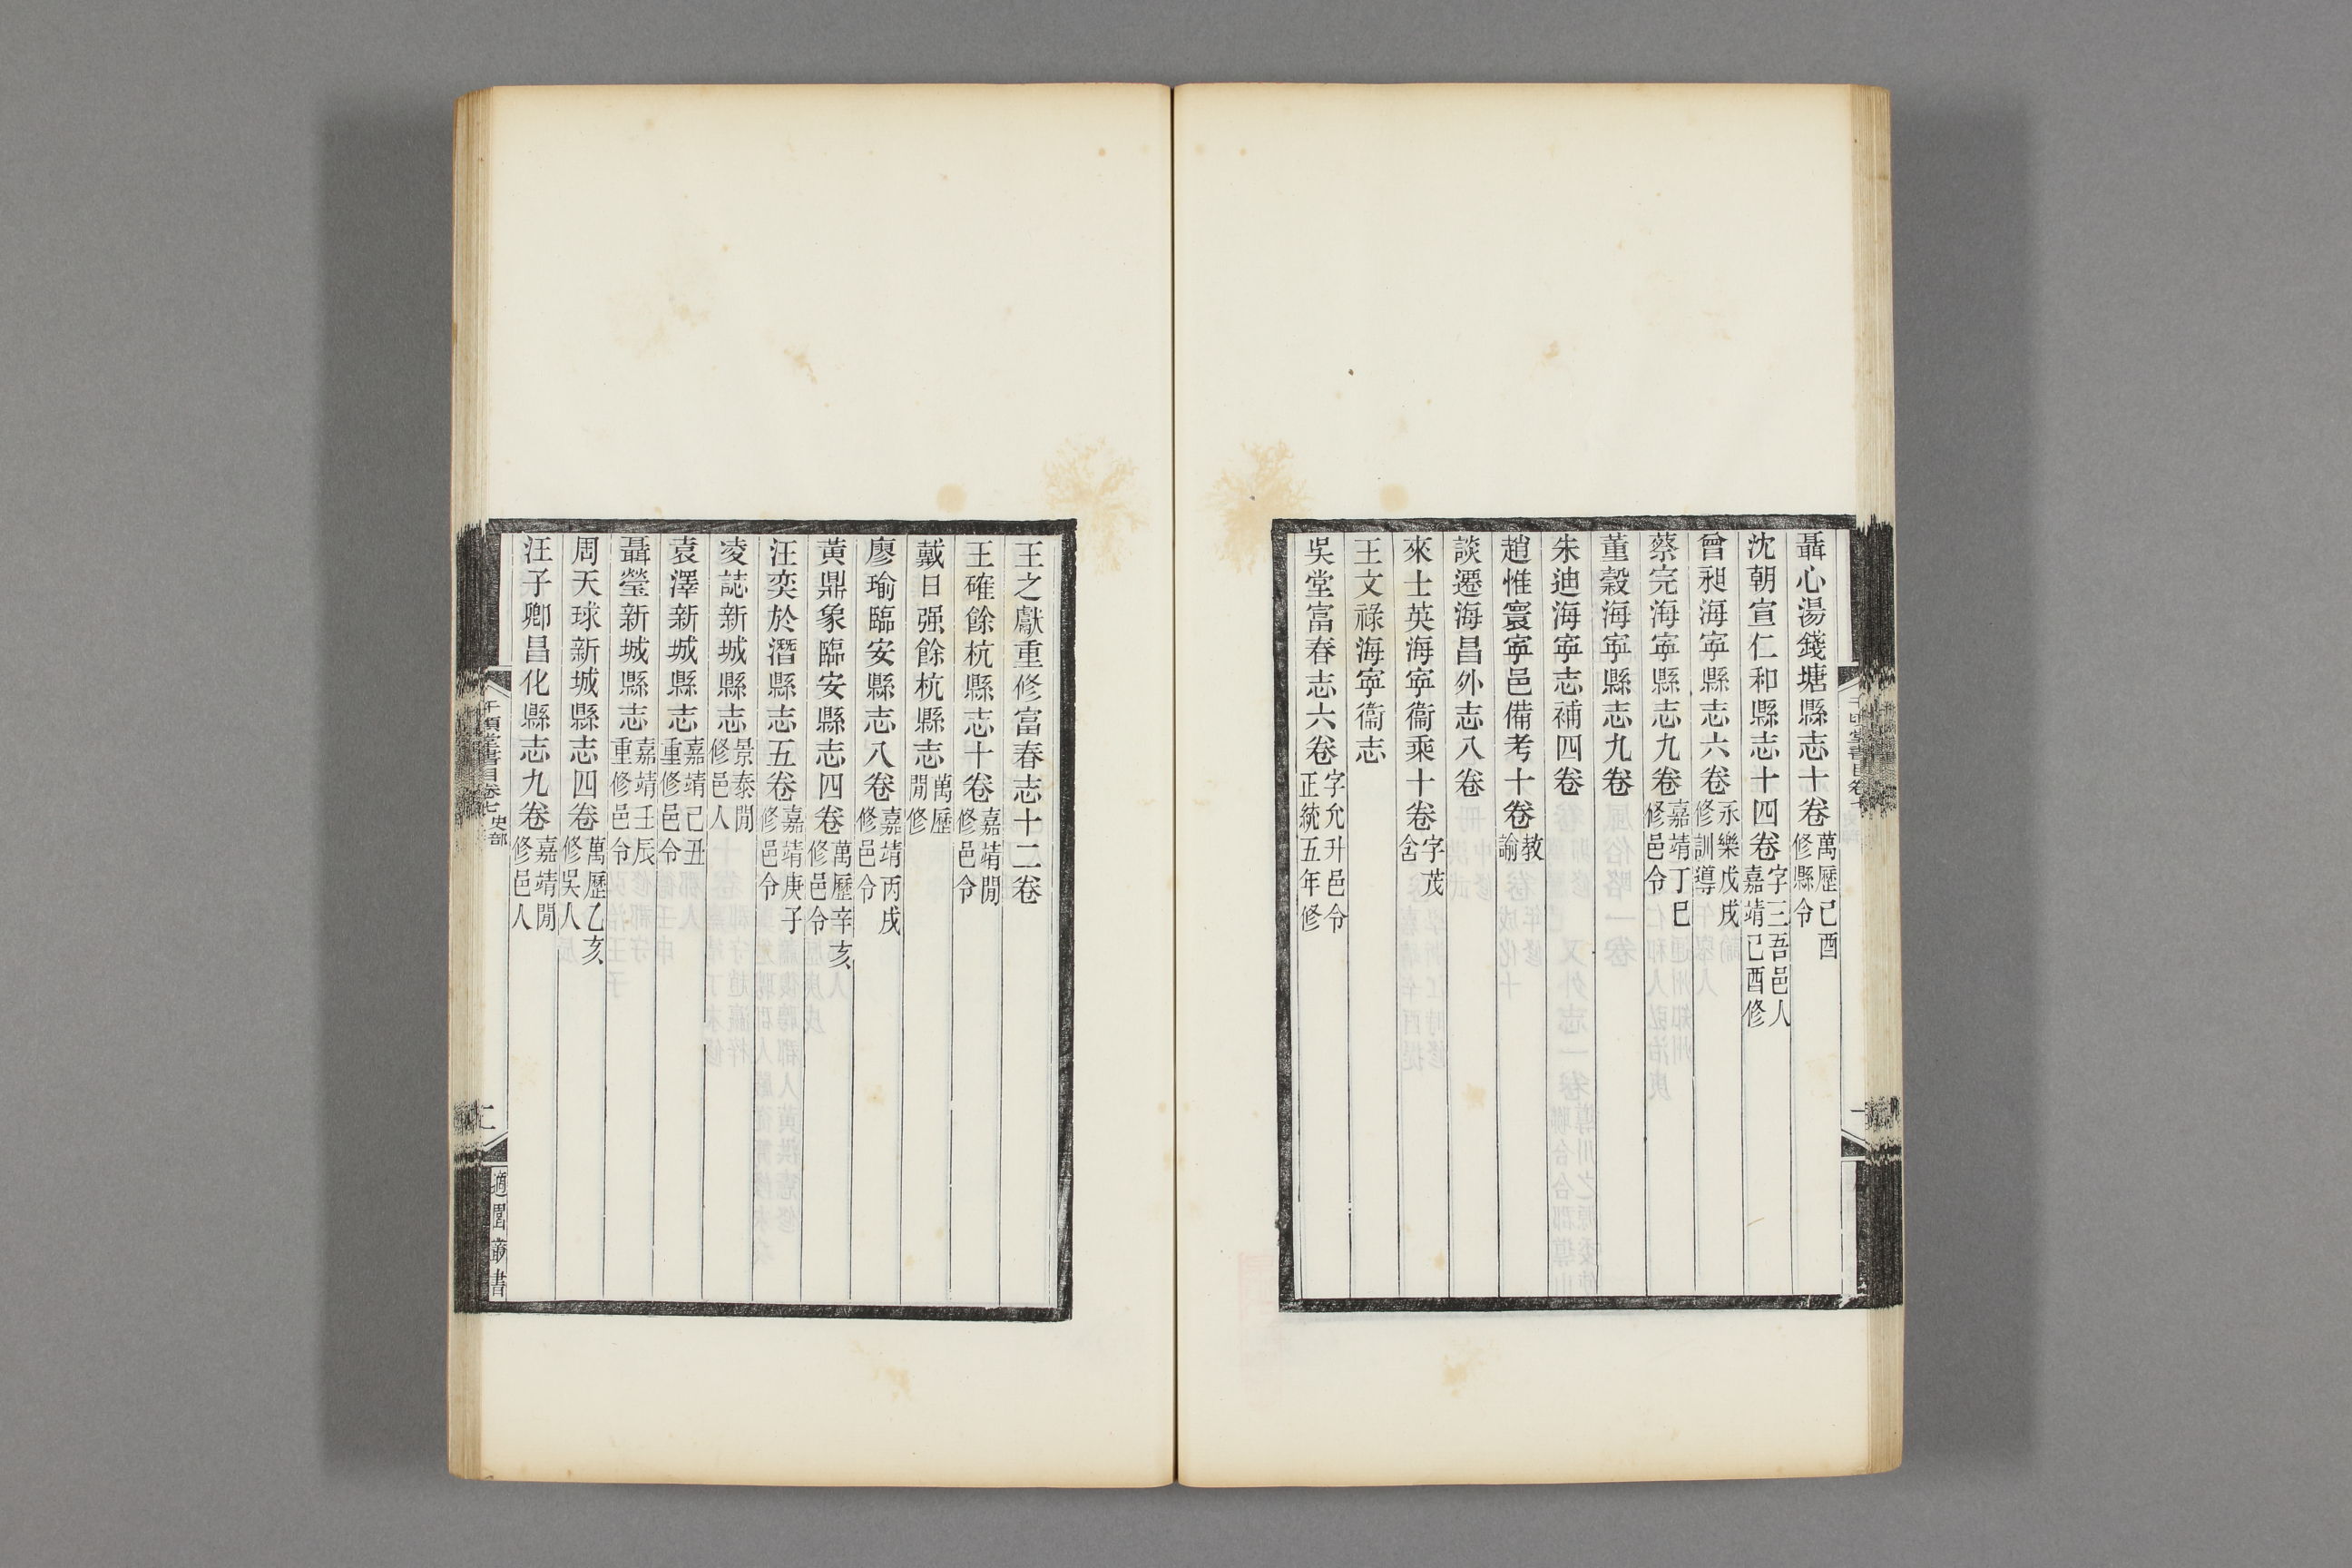 聶心湯錢塘縣志十卷萬歷己酉修縣令
沈朝宣仁和縣志十四卷字三吾邑人嘉靖己酉修
曾昶海寧縣志六卷永樂戊戌修訓導
蔡完海寧縣志九卷嘉靖丁巳修邑令
董穀海寧縣志九卷
朱廸海寧志補四卷
趙惟寰寧邑備考十卷教諭
談遷海昌外志八卷
來士英海寧衞乘十卷字茂含
王文祿海寧衞志
吳堂富春志六卷字允升邑令正統五年修
王之獻重修富春志十二卷
王確餘杭縣志十卷嘉靖閒修邑令
戴日强餘杭縣志萬歷閒修
廖瑜臨安縣志八卷嘉靖丙戌修邑令
黃鼎象臨安縣志四卷萬歷辛亥修邑令
汪奕於潛縣志五卷嘉靖庚子修邑令
凌誌新城縣志景泰閒修邑人
袁澤新城縣志嘉靖己丑重修邑令
聶瑩新城縣志嘉靖壬辰重修邑令
周天球新城縣志四卷萬歷乙亥修吳人
汪子卿昌化縣志九卷嘉靖閒修邑人
千頃堂書目卷七史部
適園叢書